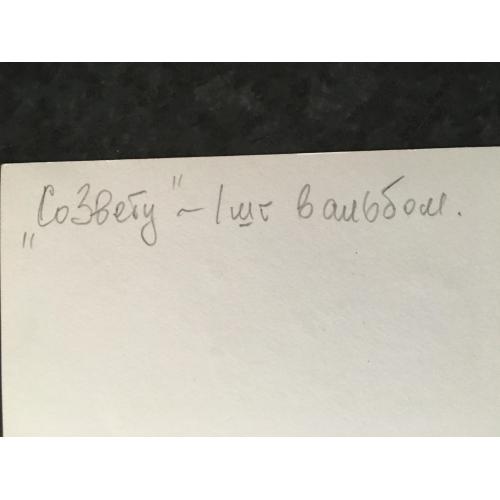 „СоЗвету" ~ 1 шт в альбом.